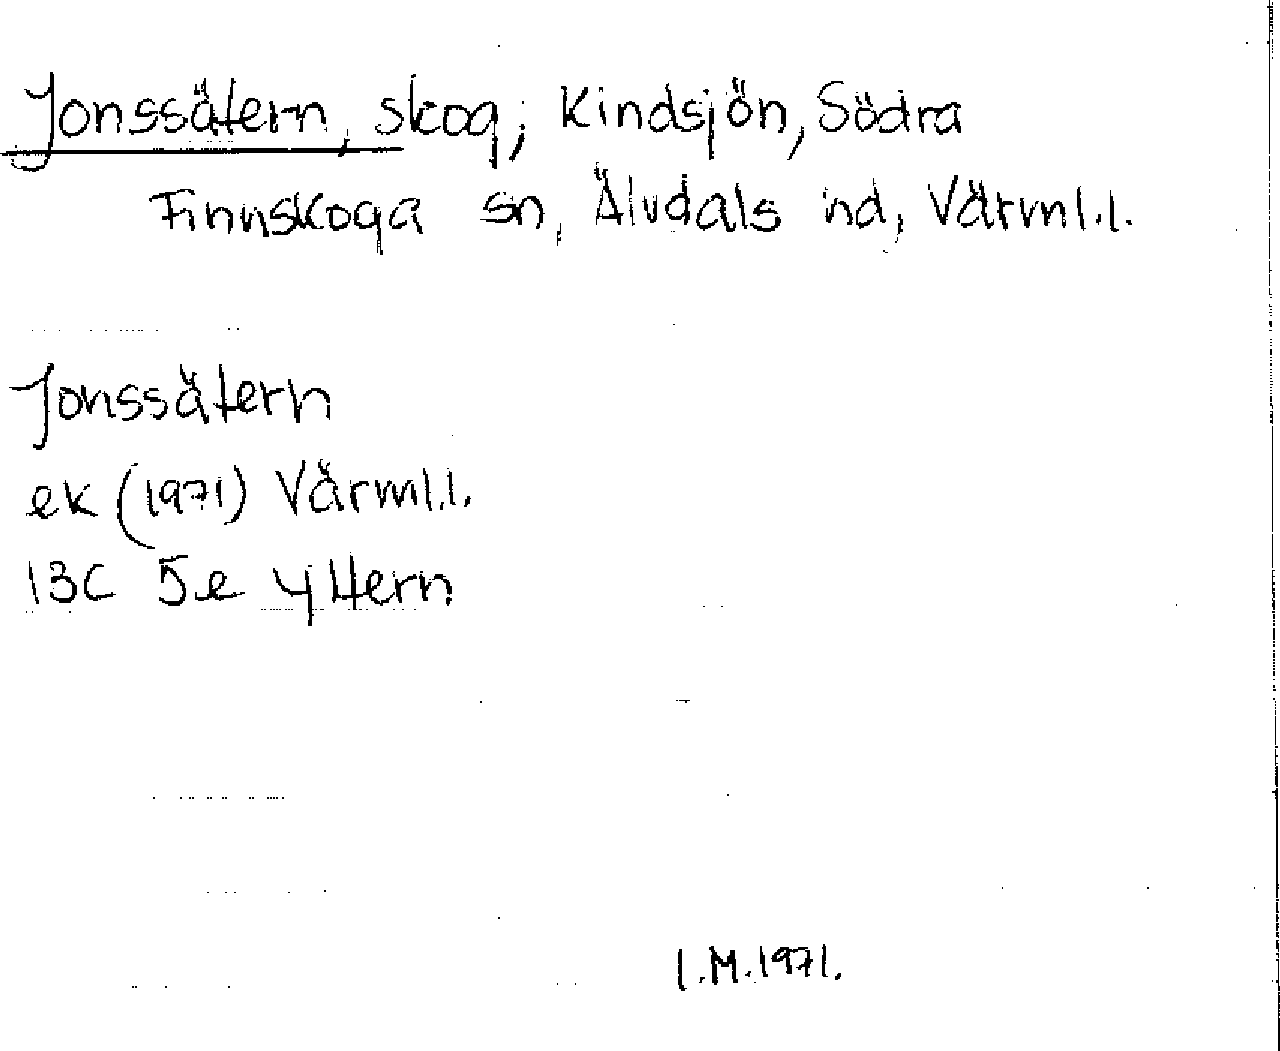 Jonssätern, skog; Kindsjön, Södra
Finnskoga sn, Älvdals hd, Värml.l.
Jonssätern
ek (1971) Värml.l.
13C 5e Yttern
I.M.1971.